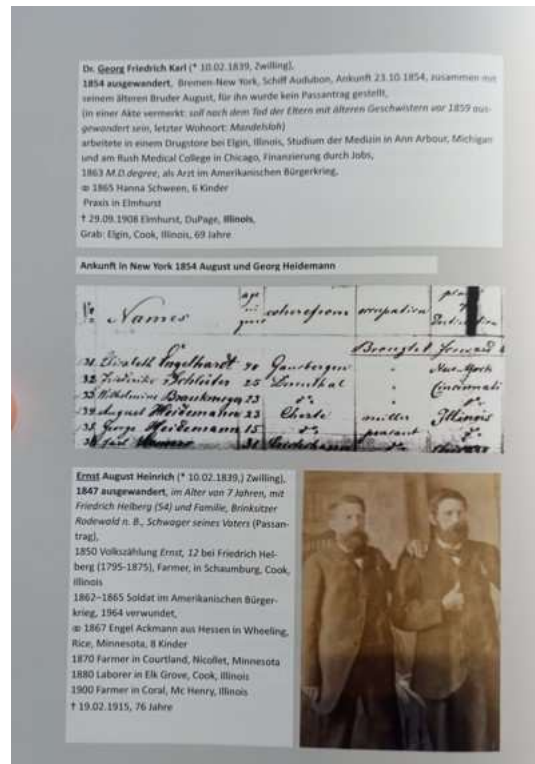 Dr. Georg Friedrich Karl (* 10.02.1839, Zwilling),
1854 ausgewandert, Bremen-New York, Schiff Audubon, Ankunft 23.10.1854, zusammen mit
seinem älteren Bruder August, für ihn wurde kein Passantrag gestellt,
(in einer Akte vermerkt: soll nach dem Tod der Eltern mit älteren Geschwistern vor 1859 aus-
gewandert sein, letzter Wohnort: Mandelsloh)
arbeitete in einem Drugstore bei Elgin, Illinois, Studium der Medizin in Ann Arbour, Michigan
und am Rush Medical College in Chicago, Finanzierung durch Jobs,
1863 M.D.degree, als Arzt im Amerikanischen Bürgerkrieg,
⚭ 1865 Hanna Schween, 6 Kinder
Praxis in Elmhurst
† 29.09.1908 Elmhurst, DuPage, Illinois,
Grab: Elgin, Cook, Illinois, 69 Jahre
Ankunft in New York 1854 August und Georg Heidemann
Names age wherefrom occupation
Brought forward
31 Elisabeth Engelhardt New-York
32 Friederike Schlüter 25 Cincinnati
33 Wilhelmine 23 do
34 August Heidemann 23 miller Illinois
35 George Heidemann 15 do peasant do
Ernst August Heinrich (* 10.02.1839,) Zwilling),
1847 ausgewandert, im Alter von 7 Jahren, mit
Friedrich Helberg (54) und Familie, Brinksitzer
Rodewald n. B., Schwager seines Vaters (Passan-
trag),
1850 Volkszählung Ernst, 12 bei Friedrich Hel-
berg (1795-1875), Farmer, in Schaumburg, Cook,
Illinois
1862–1865 Soldat im Amerikanischen Bürger-
krieg, 1964 verwundet,
⚭ 1867 Engel Ackmann aus Hessen in Wheeling,
Rice, Minnesota, 8 Kinder
1870 Farmer in Courtland, Nicollet, Minnesota
1880 Laborer in Elk Grove, Cook, Illinois
1900 Farmer in Coral, Mc Henry, Illinois
† 19.02.1915, 76 Jahre